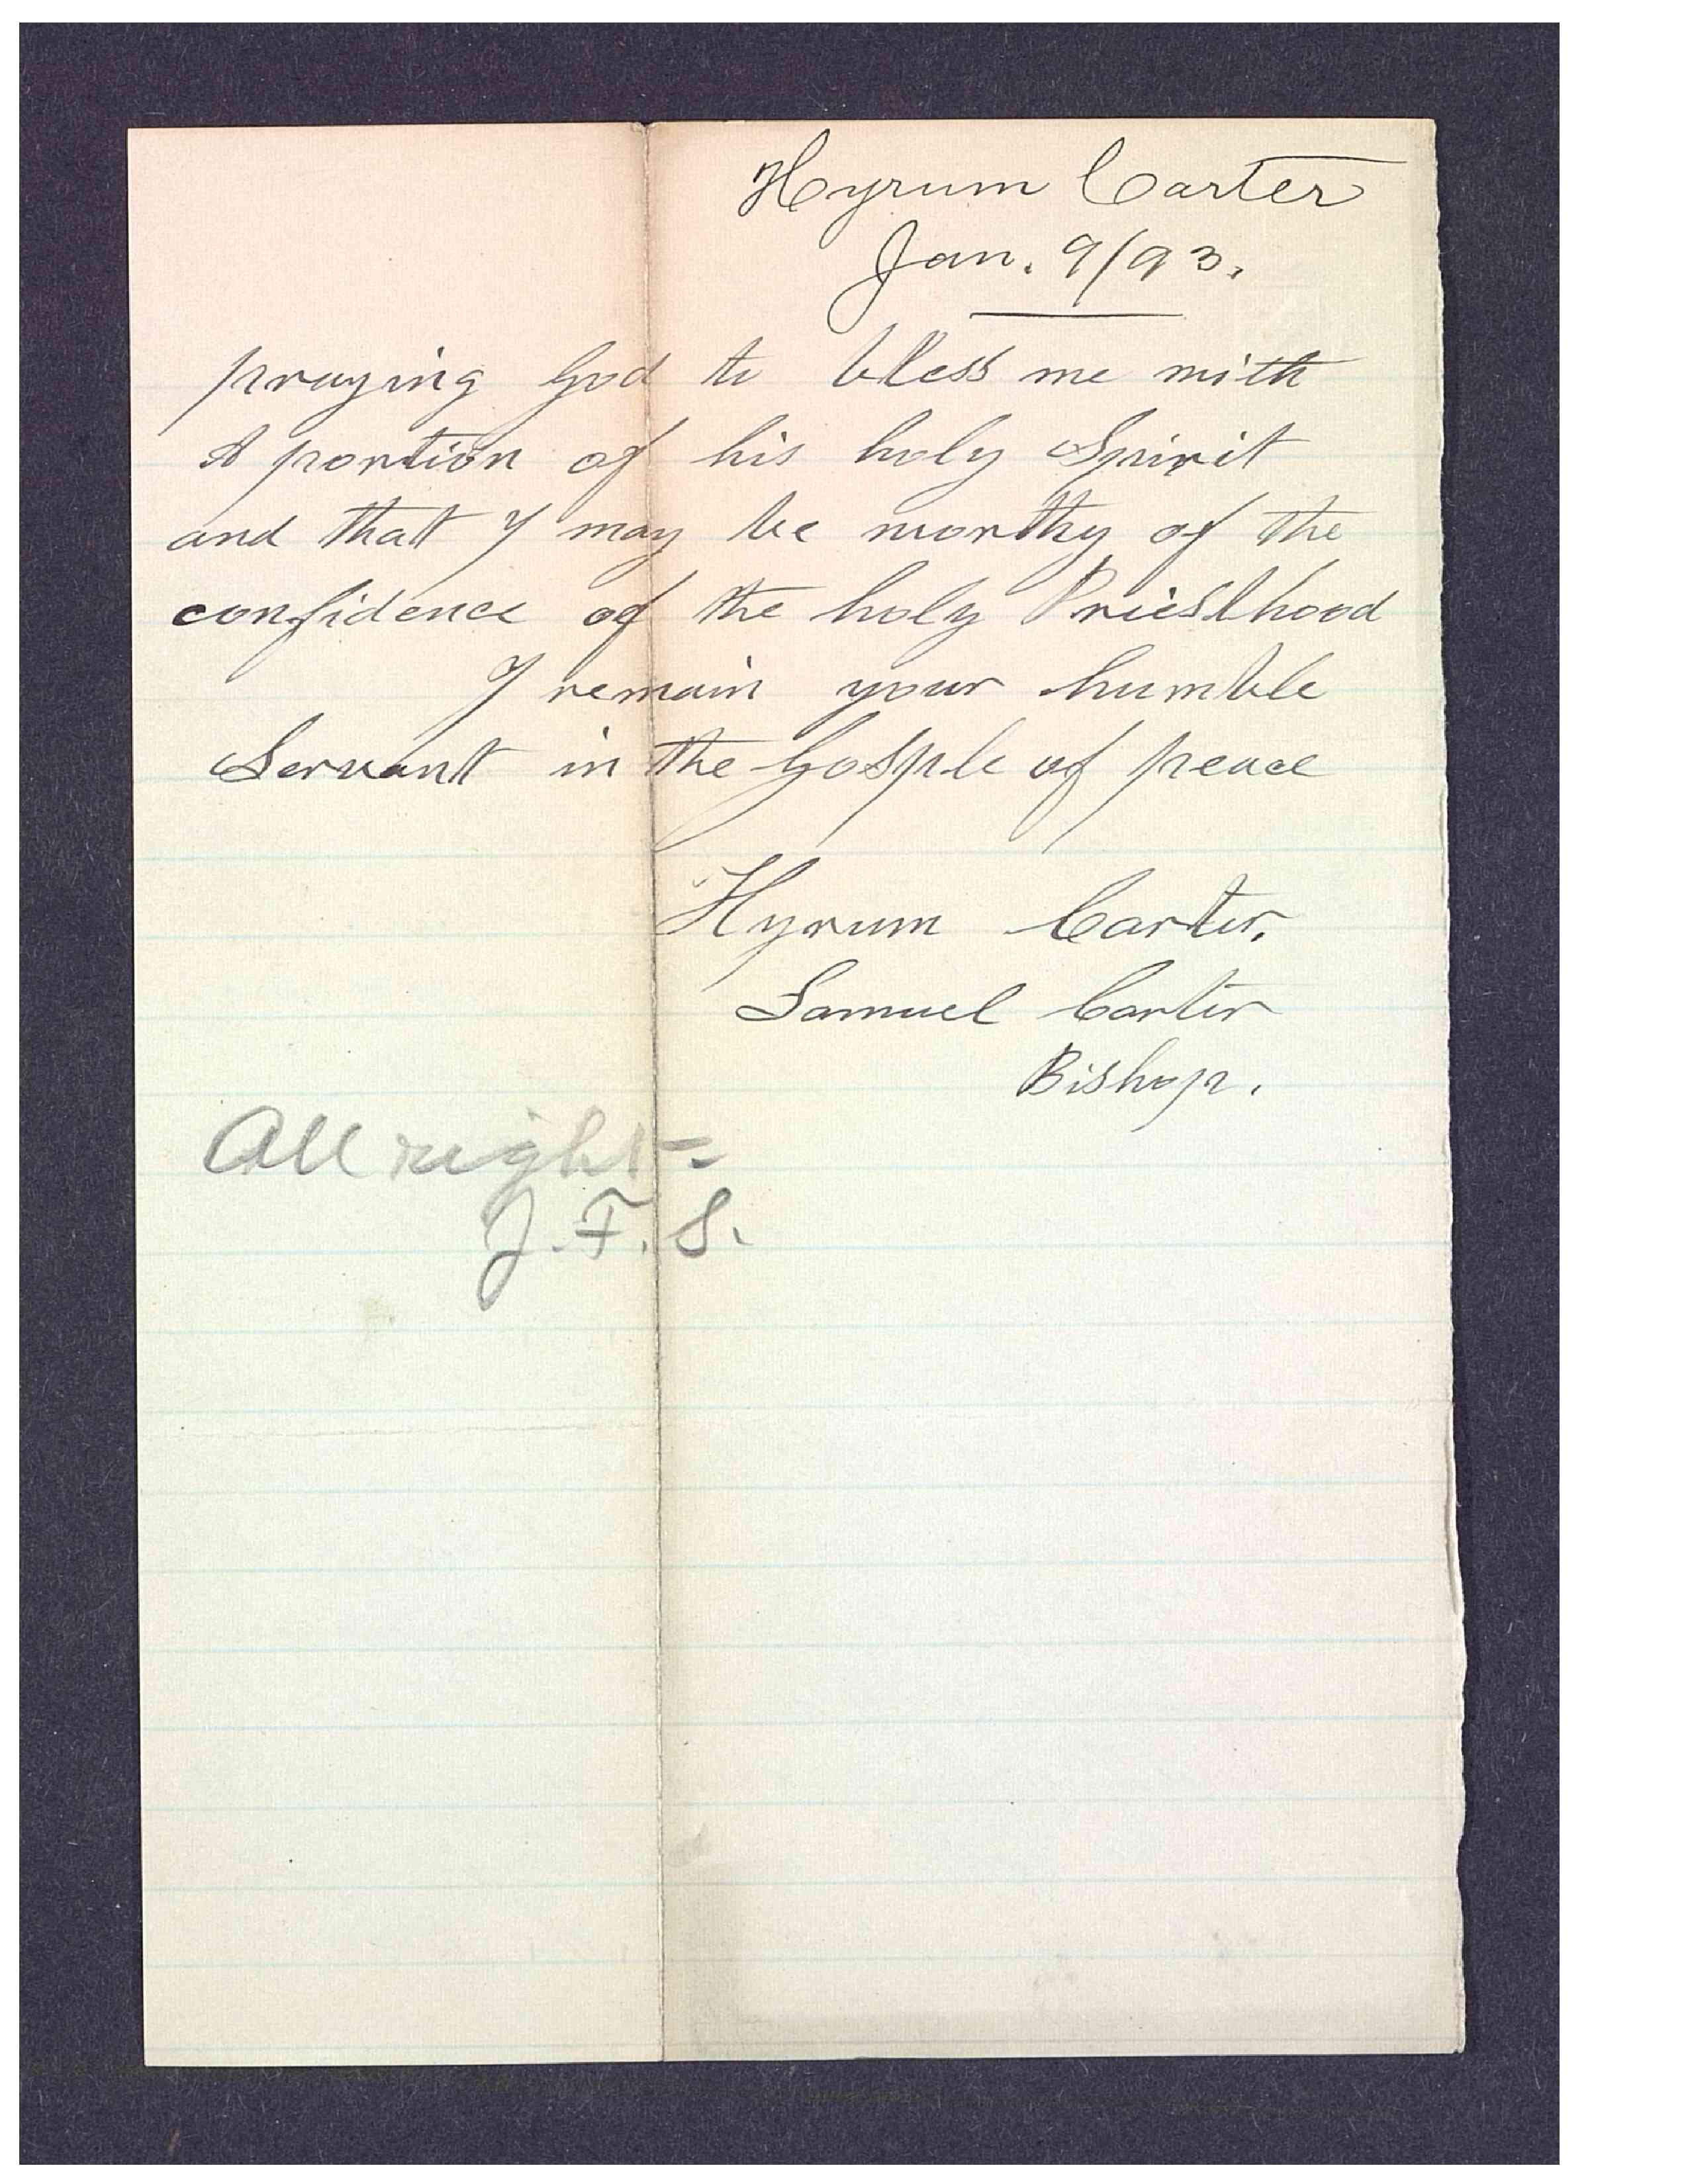 Hyrum Carter
Jan. 9/93.
praying God to bless me with
A portion of his holy Spirit
and that I may be worthy of the
confidence of the holy Priesthood
I remain your humble
Servant in the Gosple of peace
Hyrum Carter.
Samuel Carter
Bishop.
All right -
J. F. S.